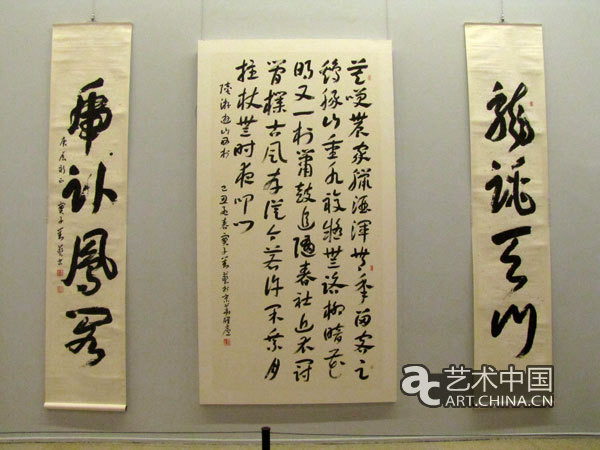 龍跳天門
莫笑農家臘酒渾豐年留客足
鷄豚山重水複疑無路柳暗花
明又一村簫鼓追隨春社近衣冠
簡樸古風存從今若許閑乘月
拄杖無時夜叩門
陸游遊山西村
虎臥鳳閣
艺术中国
ART.CHINA.CN